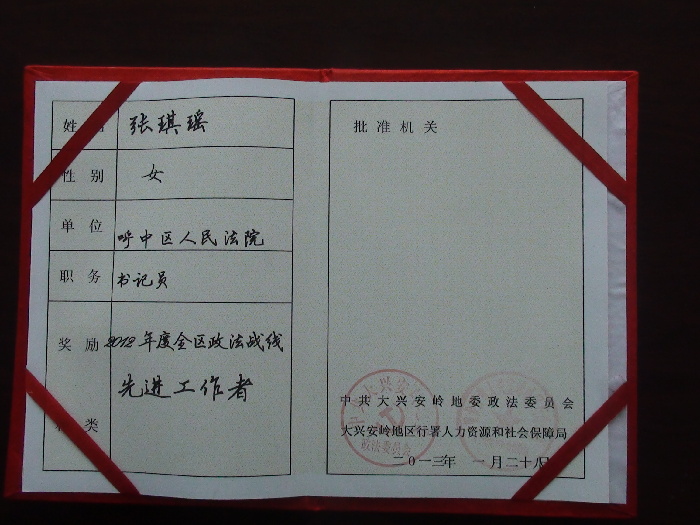 姓名 张琪瑶
性别 女
单位 呼中区人民法院
职务 书记员
奖励 2012年度全区政法战线
先进工作者
种类
批准机关
中共大兴安岭地委政法委员会
大兴安岭地区行署人力资源和社会保障局
二〇一三年 一月二十八日
政法委员会